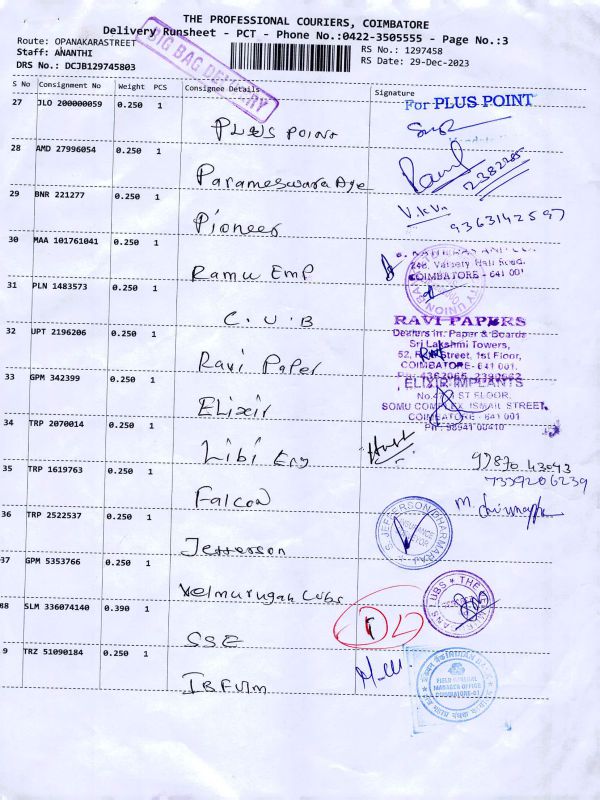 THE PROFESSIONAL COURIERS, COIMBATORE
Delivery Runsheet - PCT - Phone No.:0422-3505555 - Page No.:3
Route: OPANAKARASTREET
Staff: ANANTHI
DRS No.: DCJB129745803
BIG BAG DELIVERY
RS No.: 1297458
RS Date: 29-Dec-2023
S No Consignment No Weight PCS Consignee Details Signature
27 JLO 200000059 0.250 1
PLUS POINT
For PLUS POINT
28 AMD 27996054 0.250 1
Parameswara Aye
2382285
29 BNR 221277 0.250 1
Pioneer
V.K.Vn
9363142597
30 MAA 101761041 0.250 1
Ramu Emp
COIMBATORE - 641 001
31 PLN 1483573 0.250 1
C.U.B
32 UPT 2196206 0.250 1
Ravi Paper
RAVI PAPERS
Dealers in: Paper & Boards
Sri Lakshmi Towers,
52, Street, 1st Floor,
COIMBATORE- 641 001.
33 GPM 342399 0.250 1
Elixir
ELIXIR IMPLANTS
ST FLOOR,
SOMU COMPLEX ISMAIL STREET,
COIMBATORE - 641 001
34 TRP 2070014 0.250 1
Libi Eng
97870 43043
35 TRP 1619763 0.250 1
Falcon
7339206239
36 TRP 2522537 0.250 1
Jefferson
S. JEFFERSON DHARMARAJ
37 GPM 5353766 0.250 1
Velmurugan Lubs
38 SLM 336074140 0.390 1
SSE
9 TRZ 51090184 0.250 1
IBFVM
INDIAN BANK
FIELD GENERAL
MANAGER OFFICE
COIMBATORE-01